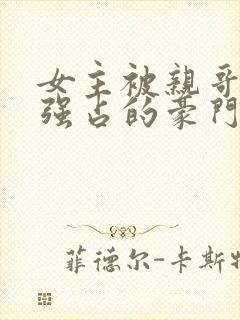 女主被親哥
強占的豪門
菲德尔-卡斯特